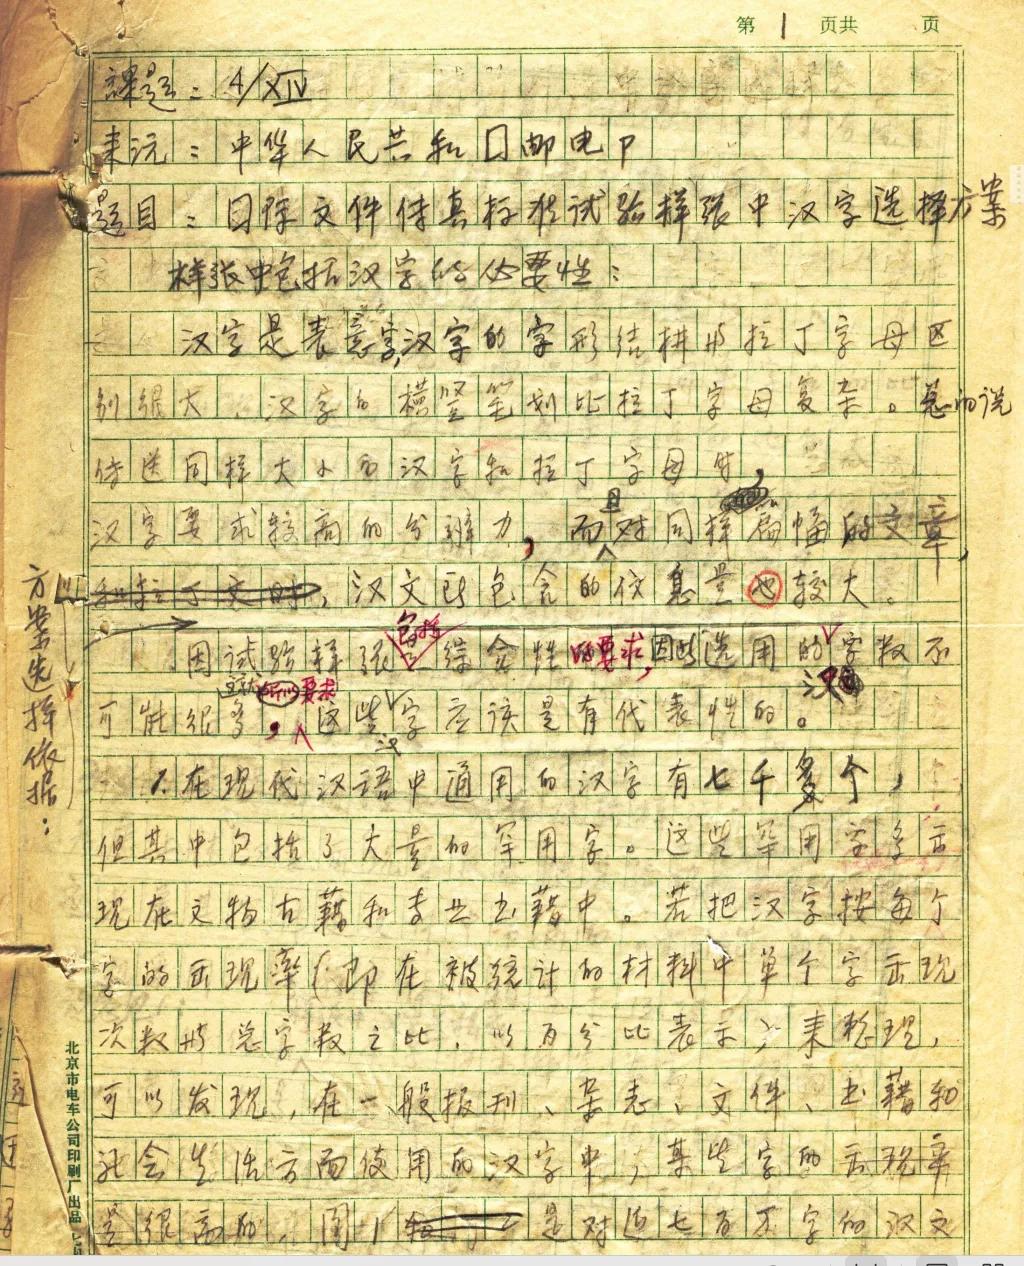 第 1 页共 页
課题：4/XIV
来沅：中华人民共和囗邮电P
题目：囗际文件传真标准试验样張中汉字选择方案
样张中包括汉字的必要性：
汉字是表意字,汉字的字形结构与拉丁字母区
别很大，汉字的横竖笔划比拉丁字母复杂。总的说
传送同样大小的汉字和拉丁字母时，
汉字要求较高的分辨力，而且对同样篇幅的文章，
和拉丁文时，汉文所包含的信息量也较大。
方案选择依据：
因试验样張包括综合性的要求，因此选用的汉字数不
可能很多，要求这些汉字应该是有代表性的。
1.在现代汉语中通用的汉字有七千多个，
但其中包括了大量的罕用字。这些罕用字多出
现在文物古藉和专业书藉中。若把汉字按每个
字的出现率(即在被统计的材料中单个字出现
次数与总字数之比，以百分比表示)来整理，
可以发现，在一般报刊、杂志、文件、书藉和
社会生活方面使用的汉字中，某些字的出现率
是很高的，图1是对近七百万字的汉文
北京市电车公司印刷厂出品